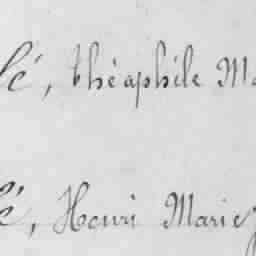 lé, théaphile Ma
é, Henri Marie